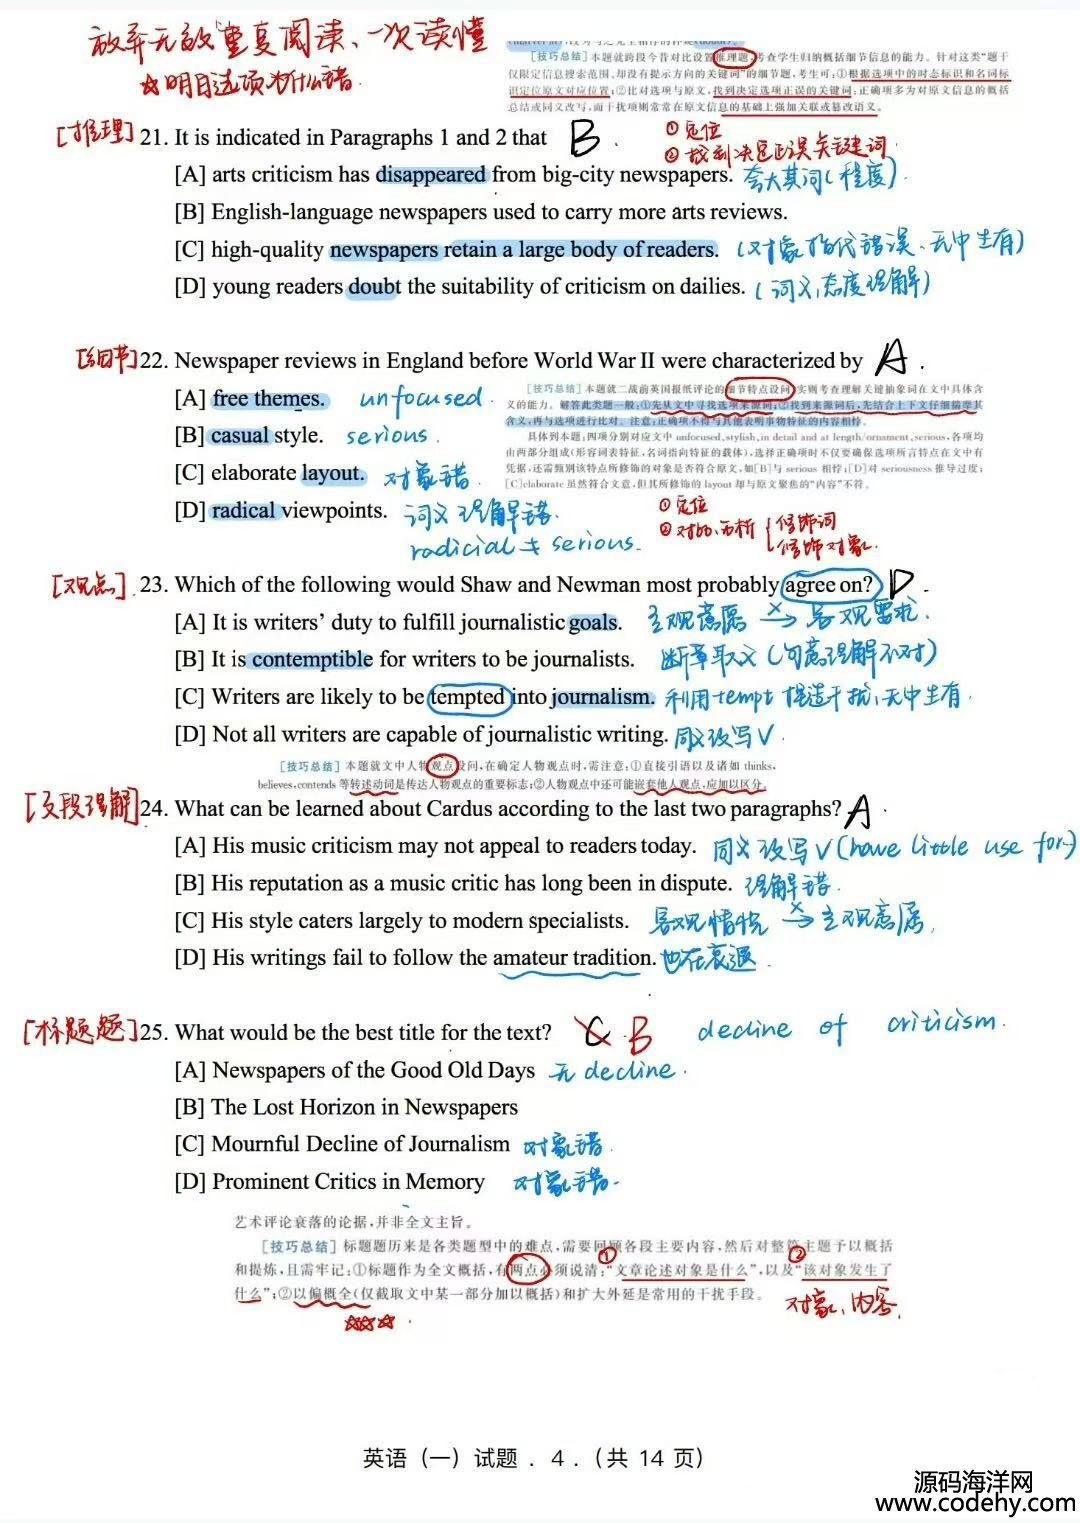 放弃无效重复阅读、一次读懂
☆明白选项为什么错
[技巧总结] 本题就跨段今昔对比设置推理题,考查学生归纳概括细节信息的能力。针对这类“题干
仅限定信息搜索范围、却没有提示方向的关键词”的细节题,考生可:①根据选项中的时态标识和名词标
识定位原文对应位置;②比对选项与原文,找到决定选项正误的关键词;正确项多为对原文信息的概括
总结或同义改写,而干扰项常常在原文信息的基础上强加关联或篡改语义。
[推理] 21. It is indicated in Paragraphs 1 and 2 that B .
①定位
②找到决定正误关键词
[A] arts criticism has disappeared from big-city newspapers. 夸大其词(程度).
[B] English-language newspapers used to carry more arts reviews.
[C] high-quality newspapers retain a large body of readers. (对象指代错误、无中生有)
[D] young readers doubt the suitability of criticism on dailies. (词义,态度理解)
[细节] 22. Newspaper reviews in England before World War II were characterized by A .
[A] free themes. unfocused.
[B] casual style. serious.
[C] elaborate layout. 对象错.
[D] radical viewpoints. 词义理解错.
radicial ≠ serious.
[技巧总结] 本题就二战前英国报纸评论的细节特点设问,实则考查理解关键抽象词在文中具体含
义的能力。解答此类题一般:①先从文中寻找选项来源词;②找到来源词后,先结合上下文仔细揣摩其
含义,再与选项进行比对。注意:正确项不得与其他表明事物特征的内容相悖。
具体到本题:四项分别对应文中 unfocused、stylish、in detail and at length/ornament、serious,各项均
由两部分组成(形容词表特征,名词指向特征的载体),选择正确项时不仅要确保选项所言特点在文中有
凭据,还需甄别该特点所修饰的对象是否符合原文,如[B]与 serious 相悖;[D]对 seriousness 推导过度;
[C]elaborate 虽然符合文意,但其所修饰的 layout 却与原文聚焦的“内容”不符。
①定位
②对比、分析 { 修饰词
修饰对象.
[观点] 23. Which of the following would Shaw and Newman most probably agree on? D .
[A] It is writers’ duty to fulfill journalistic goals. 主观意愿 × → 客观需求.
[B] It is contemptible for writers to be journalists. 断章取义(句意理解不对)
[C] Writers are likely to be tempted into journalism. 利用tempt 捏造干扰,无中生有.
[D] Not all writers are capable of journalistic writing. 同义改写√.
[技巧总结] 本题就文中人物观点设问,在确定人物观点时,需注意:①直接引语以及诸如 thinks,
believes,contends 等转述动词是传达人物观点的重要标志;②人物观点中还可能嵌套他人观点,应加以区分。
[文段理解] 24. What can be learned about Cardus according to the last two paragraphs? A .
[A] His music criticism may not appeal to readers today. 同义改写√(have little use for)
[B] His reputation as a music critic has long been in dispute. 理解错.
[C] His style caters largely to modern specialists. 客观情况 × → 主观意愿.
[D] His writings fail to follow the amateur tradition. 也在衰退.
[标题题] 25. What would be the best title for the text? C B decline of criticism.
[A] Newspapers of the Good Old Days 无 decline.
[B] The Lost Horizon in Newspapers
[C] Mournful Decline of Journalism 对象错.
[D] Prominent Critics in Memory 对象错.
艺术评论衰落的论据,并非全文主旨。
[技巧总结] 标题题历来是各类题型中的难点,需要回顾各段主要内容,然后对整篇主题予以概括
和提炼,且需牢记:①标题作为全文概括,有两点必须说清:“文章论述对象是什么”,以及“该对象发生了
什么”;②以偏概全(仅截取文中某一部分加以概括)和扩大外延是常用的干扰手段。
① ②
对象、内容.
☆☆☆
英语（一）试题 . 4 .（共 14 页）
源码海洋网
www.codehy.com